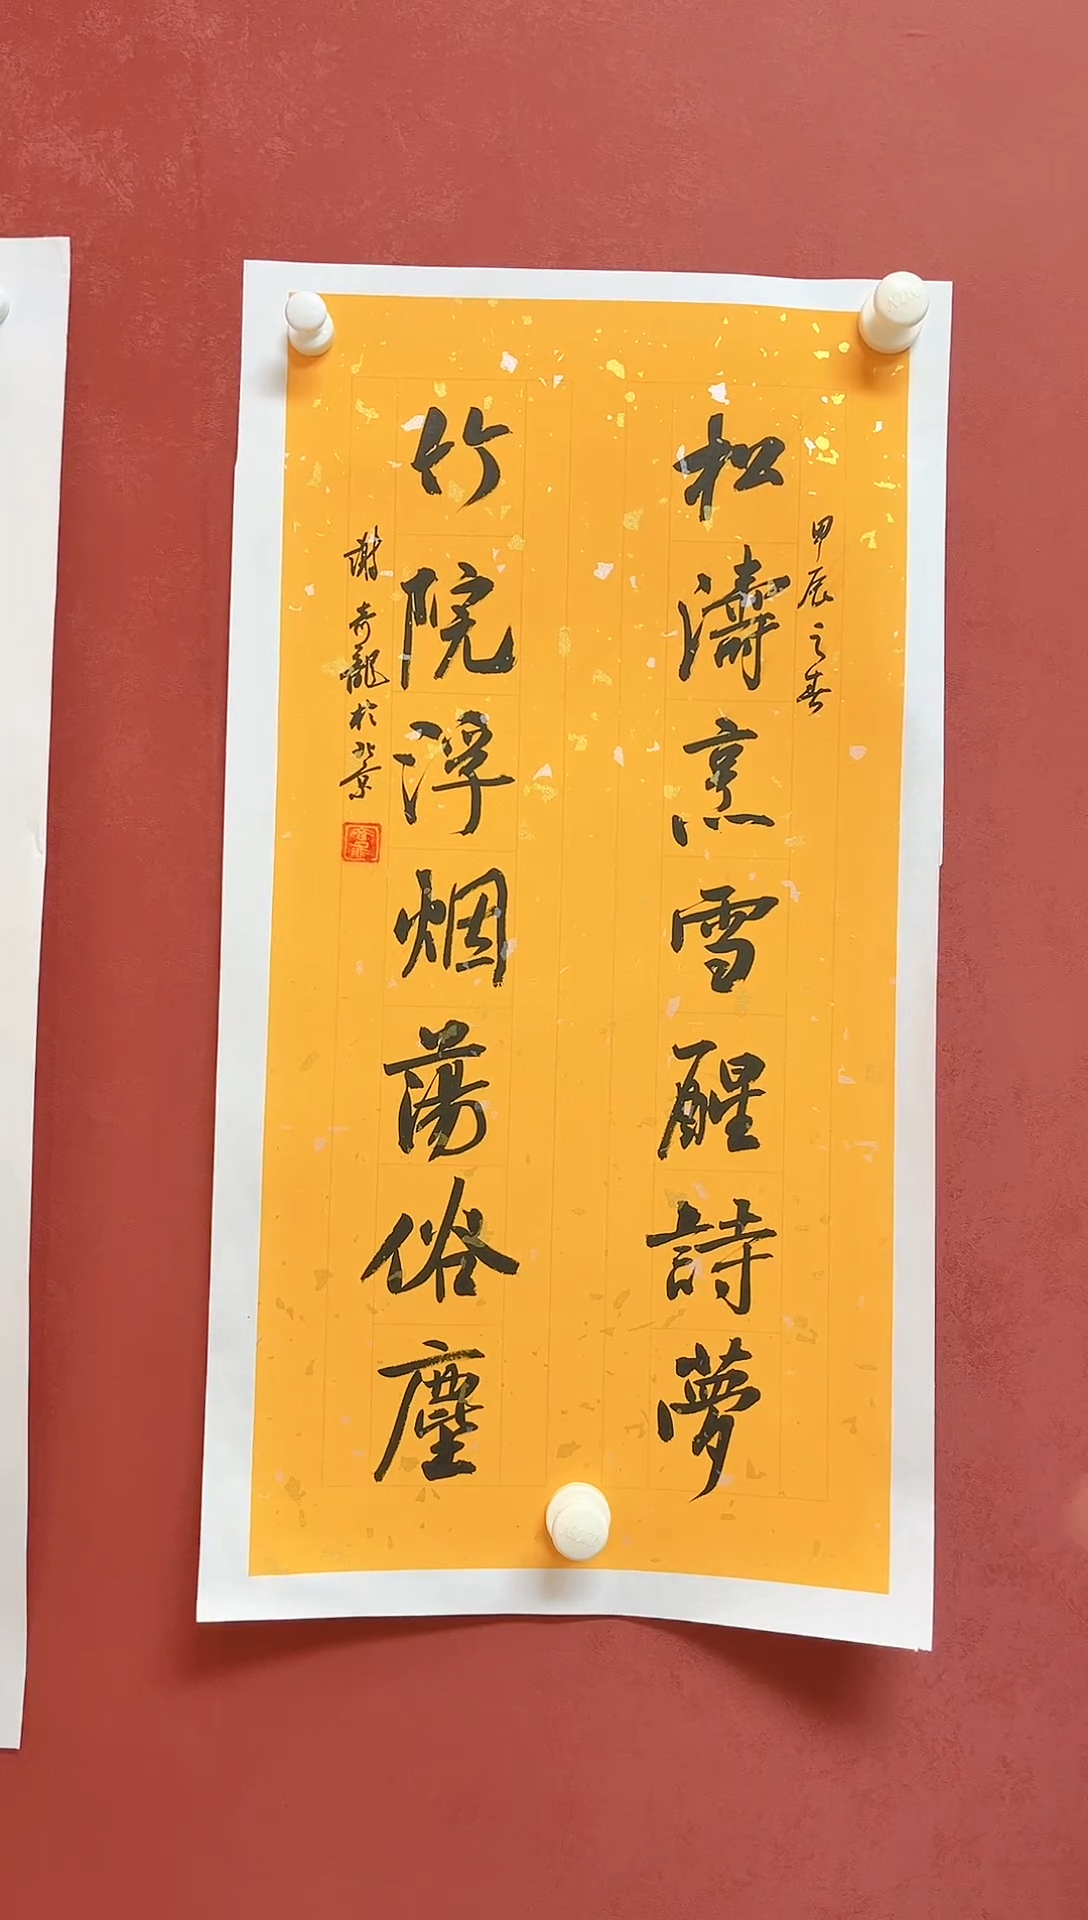 甲辰之春
松濤烹雪醒詩夢
竹院浮烟蕩俗塵
謝奇龍於北京